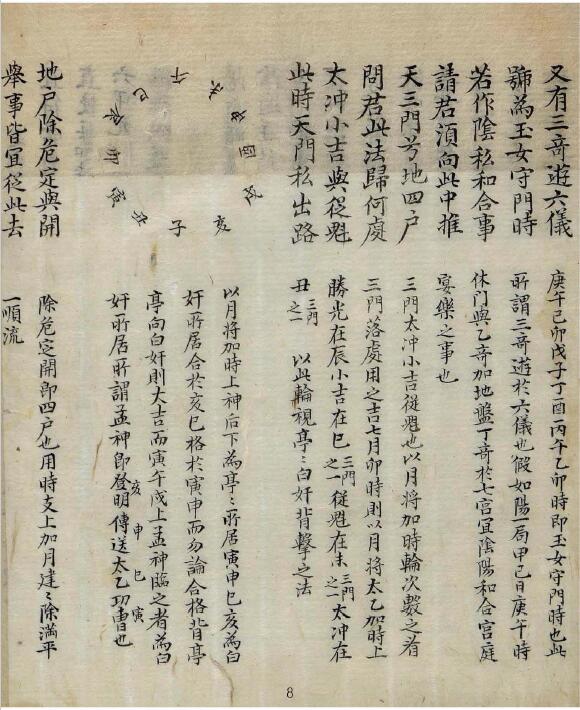 又有三奇遊六儀
號為玉女守門時
若作陰私和合事
請君須向此中推
天三門兮地四戶
問君此法歸何處
太冲小吉與從魁
此時天門私出路
午
未
申
酉
戌
亥
子
丑
寅
卯
辰
巳
地戶除危定與開
舉事皆宜從此去
庚午己卯戊子丁酉丙午乙卯時即玉女守門時也此
所謂三奇遊於六儀也假如陽一局甲己日庚午時
休门與乙奇加地盤丁奇於七宮宜陰陽和合宮庭
宴樂之事也
三門太冲小吉從魁也以月將加時輪次數之看
三門落處用之吉七月卯時則以月將太乙加時上
勝光在辰小吉在巳三門之一從魁在未三門之一太冲在
丑三門之一 以此輪視亭〻白奸背擊之法
以月將加時上神后下為亭〻所居寅申巳亥為白
奸所居合於亥巳格於寅申而勿論合格背亭
亭向白奸則大吉而寅午戌上孟神臨之者為白
奸所居所謂孟神即登明亥傳送申太乙巳功曹寅也
除危定開即四戶也用時支上加月建〻除滿平
一順流
8